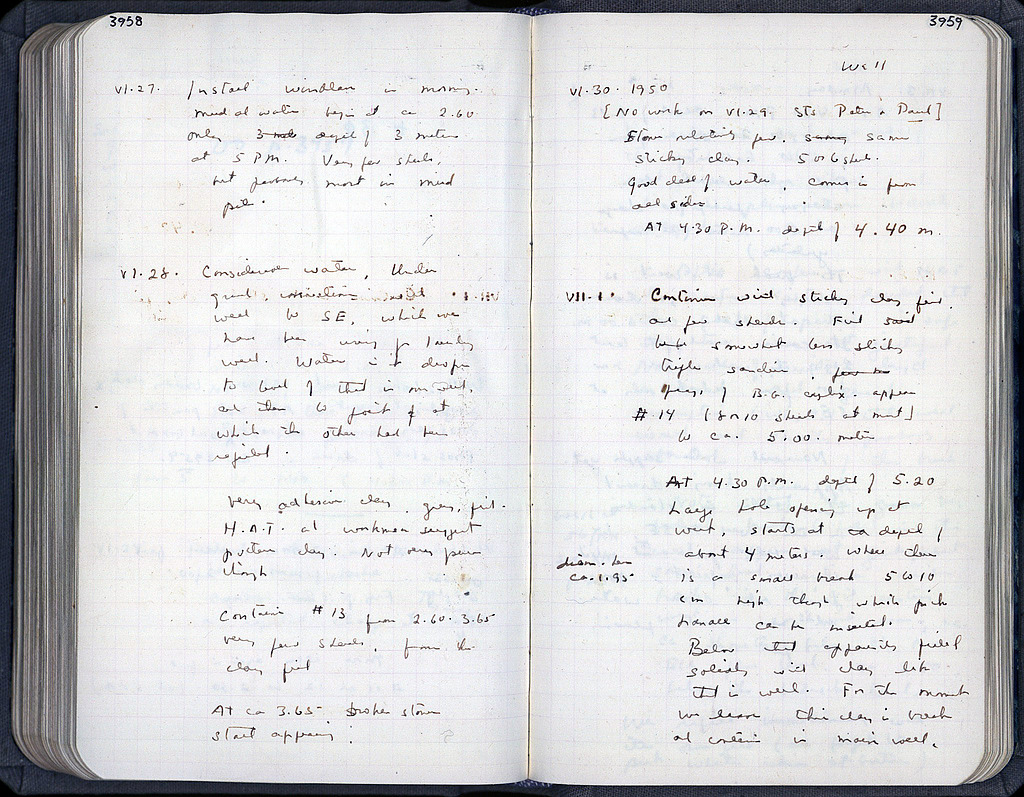 3958
VI.27. Install windlass in morning.
Mud and water begin at ca 2.60
only depth of 3 meters
at 5 P.M. Very few sherds,
not most in mud
pile.
VI.28. Considerable water. Under
well to SE, which we
have been using for
well. Water in it drops
to level of that in our well,
and then to point at
which the other had been
Very adhesive clay, gray, fill.
H.A.T. and workmen suggest
potters clay. Not very pure
though
Container #13 from 2.60-3.65
very few sherds, from the
clay fill
At ca 3.65 broken stones
start appearing.
3959
Well
VI.30. 1950
[No work on VI.29. Sts Peter & Paul]
Stones relatively few. same
sticky clay. 5 or 6 sherds.
Good deal of water, comes in from
all sides
At 4.30 P.M. depth of 4.40 m.
VII.1. Continue with sticky clay fill
and few sherds. Find
but somewhat less sticky
sandier
frag. of B.G. appear
#14 [8 or 10 sherds at most]
to ca. 5.00. meters
At 4.30 P.M. depth of 5.20
Large hole opening up at
west, starts at a depth of
about 4 meters. Where there
is a small break 5 to 10
cm high through which pick
handle can be inserted.
diam. here
ca. 1.95
Below that apparently filled
solidly with clay like
that in well. For the moment
we leave this clay in break
and continue in main well.